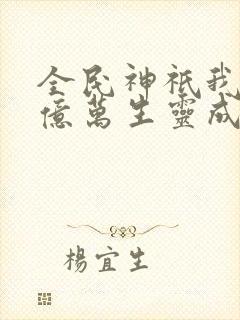 全民神祇我
億萬生靈成
楊宜生